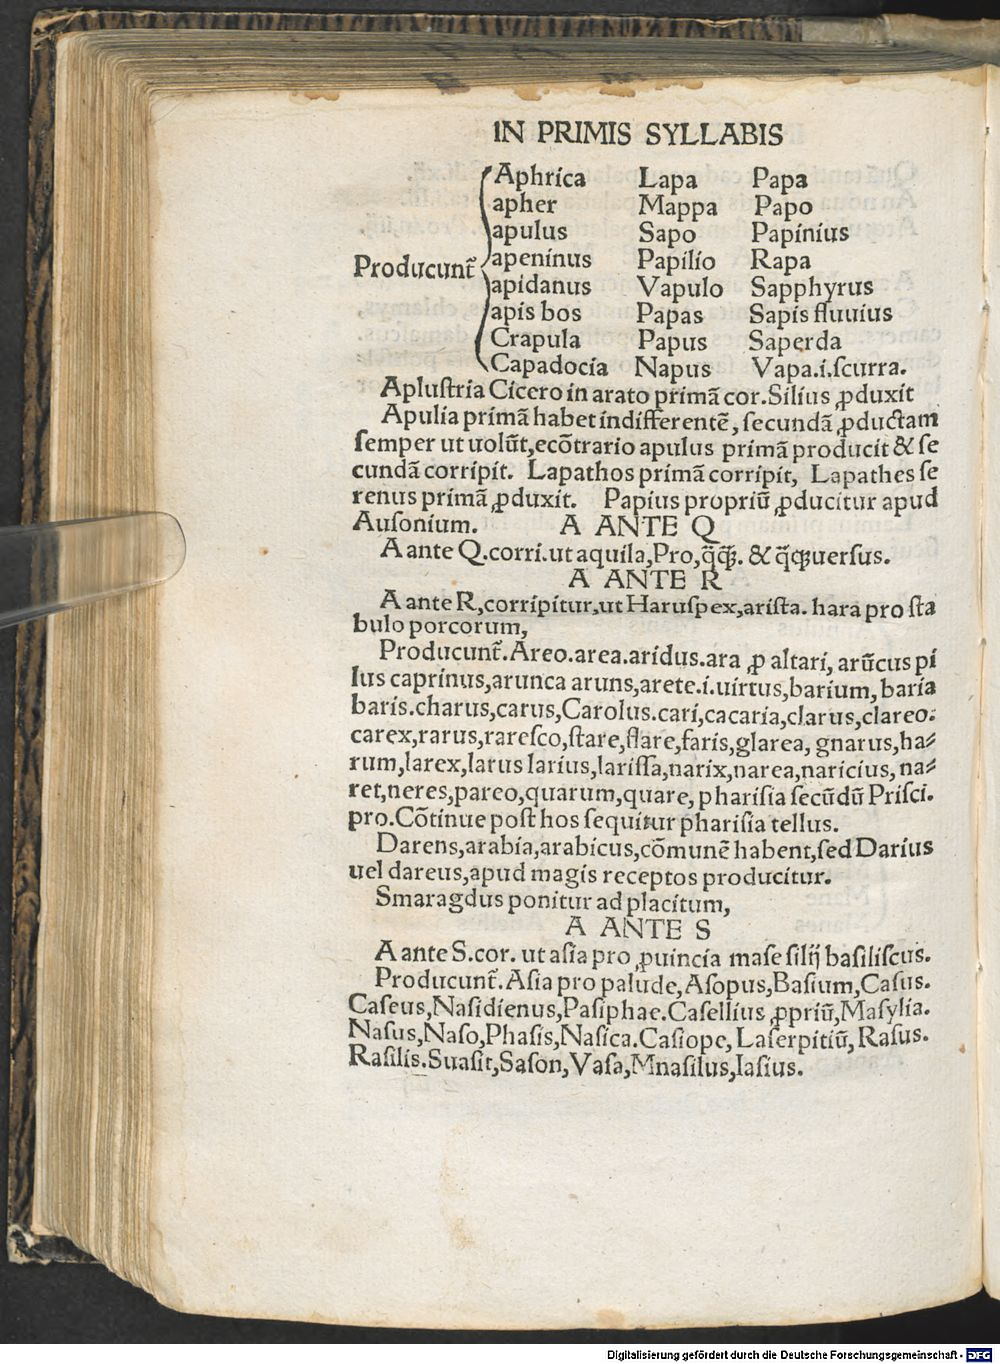 IN PRIMIS SYLLABIS
Aphrica Lapa Papa
apher Mappa Papo
apulus Sapo Papinius
Producunt᷑ apeninus Papilio Rapa
apidanus Vapulo Sapphyrus
apis bos Papas Sapis fluuius
Crapula Papus Saperda
Capadocia Napus Vapa.i.ſcurra.
Apluſtria Cicero in arato primã cor.Silius ꝓduxit
Apulia primã habet indifferentẽ, ſecundã ꝓductam
ſemper ut uolũt,ecõtrario apulus primã producit & ſe
cundã corripit. Lapathos primã corripit, Lapathes ſe
renus primã ꝓduxit. Papius propriũ ꝓducitur apud
Auſonium. A ANTE Q
A ante Q.corri.ut aquila,Pro,q̃ꝙ̃. & q̃ꝙuerſus.
A ANTE R
A ante R,corripitur,ut Haruſpex,ariſta. hara pro ſta
bulo porcorum,
Producunt᷑.Areo.area.aridus.ara ꝓ altari, arũcus pi
lus caprinus,arunca aruns,arete.i.uirtus,barium, baria
baris.charus,carus,Carolus.cari,cacaria,clarus,clareo:
carex,rarus,rareſco,ſtare,flare,faris,glarea, gnarus,ha⸗
rum,larex,larus larius,lariſſa,narix,narea,naricius, na⸗
ret,neres,pareo,quarum,quare, phariſia ſecũdũ Priſci.
pro.Cõtinue poſt hos ſequitur phariſia tellus.
Darens,arabia,arabicus,cõmunẽ habent,ſed Darius
uel dareus,apud magis receptos producitur.
Smaragdus ponitur ad placitum,
A ANTE S
A ante S.cor. ut aſia pro ꝓuincia maſe ſilij baſiliſcus.
Producunt᷑.Aſia pro palude,Aſopus,Baſium,Caſus.
Caſeus,Naſidienus,Paſiphae.Caſellius ꝓpriũ,Maſylia.
Naſus,Naſo,Phaſis,Naſica.Caſiope, Laſerpitiũ, Raſus.
Raſilis.Suaſit,Saſon,Vaſa,Mnaſilus,Iaſius.
Digitalisierung gefördert durch die Deutsche Forschungsgemeinschaft - DFG